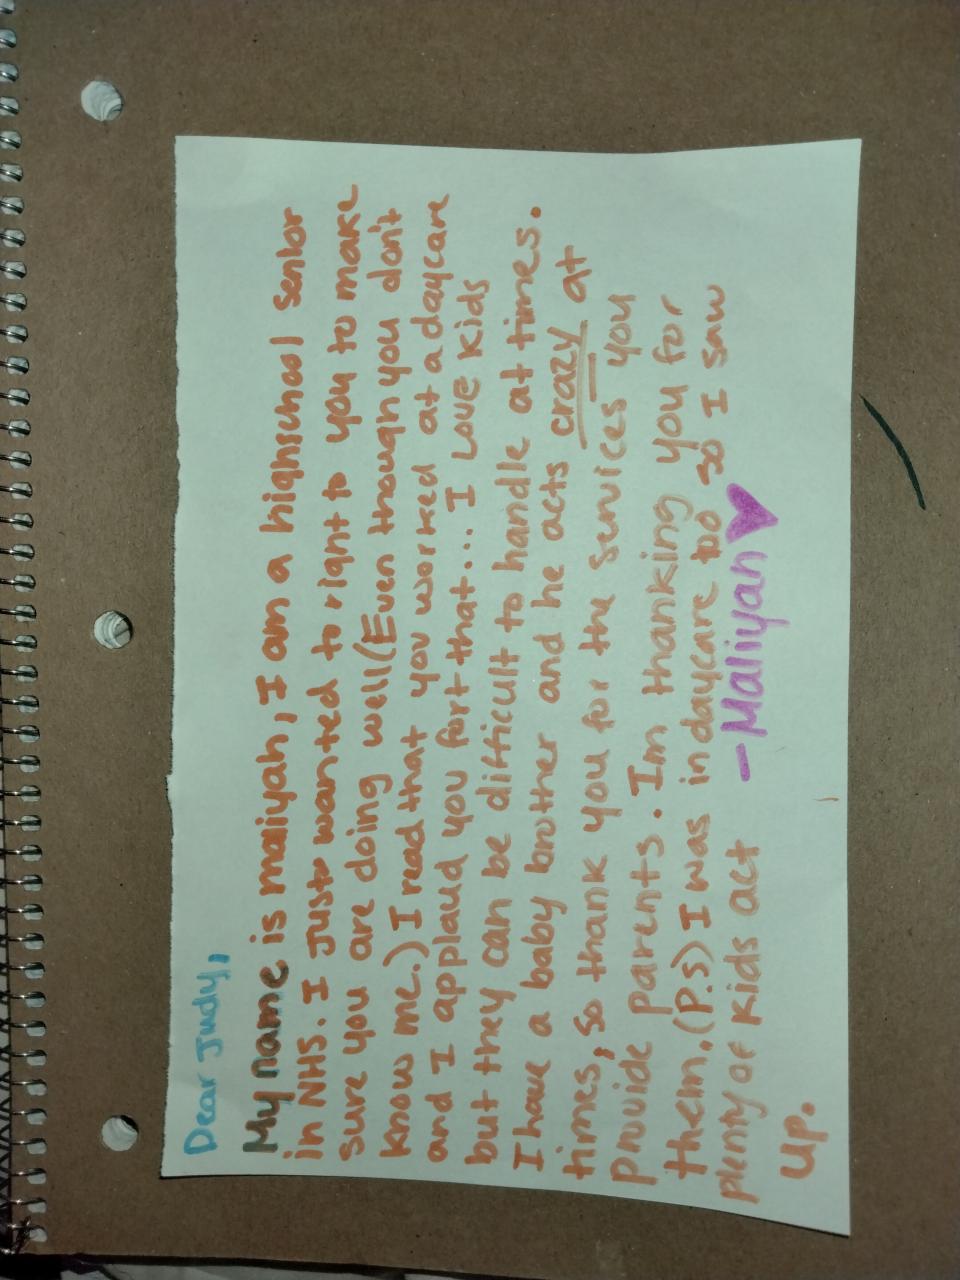 Dear Judy,
My name is maliyah, I am a highschool senior
in NHS. I Just wanted to right to you to make
sure you are doing well(Even though you don't
know me.) I read that you worked at a daycare
and I applaud you for that... I Love kids
but they can be difficult to handle at times.
I have a baby brother and he acts crazy at
times, so thank you for the services you
provide parents. Im thanking you for
them. (P.S) I was in daycare too so I saw
plenty of kids act
up.
—Maliyah